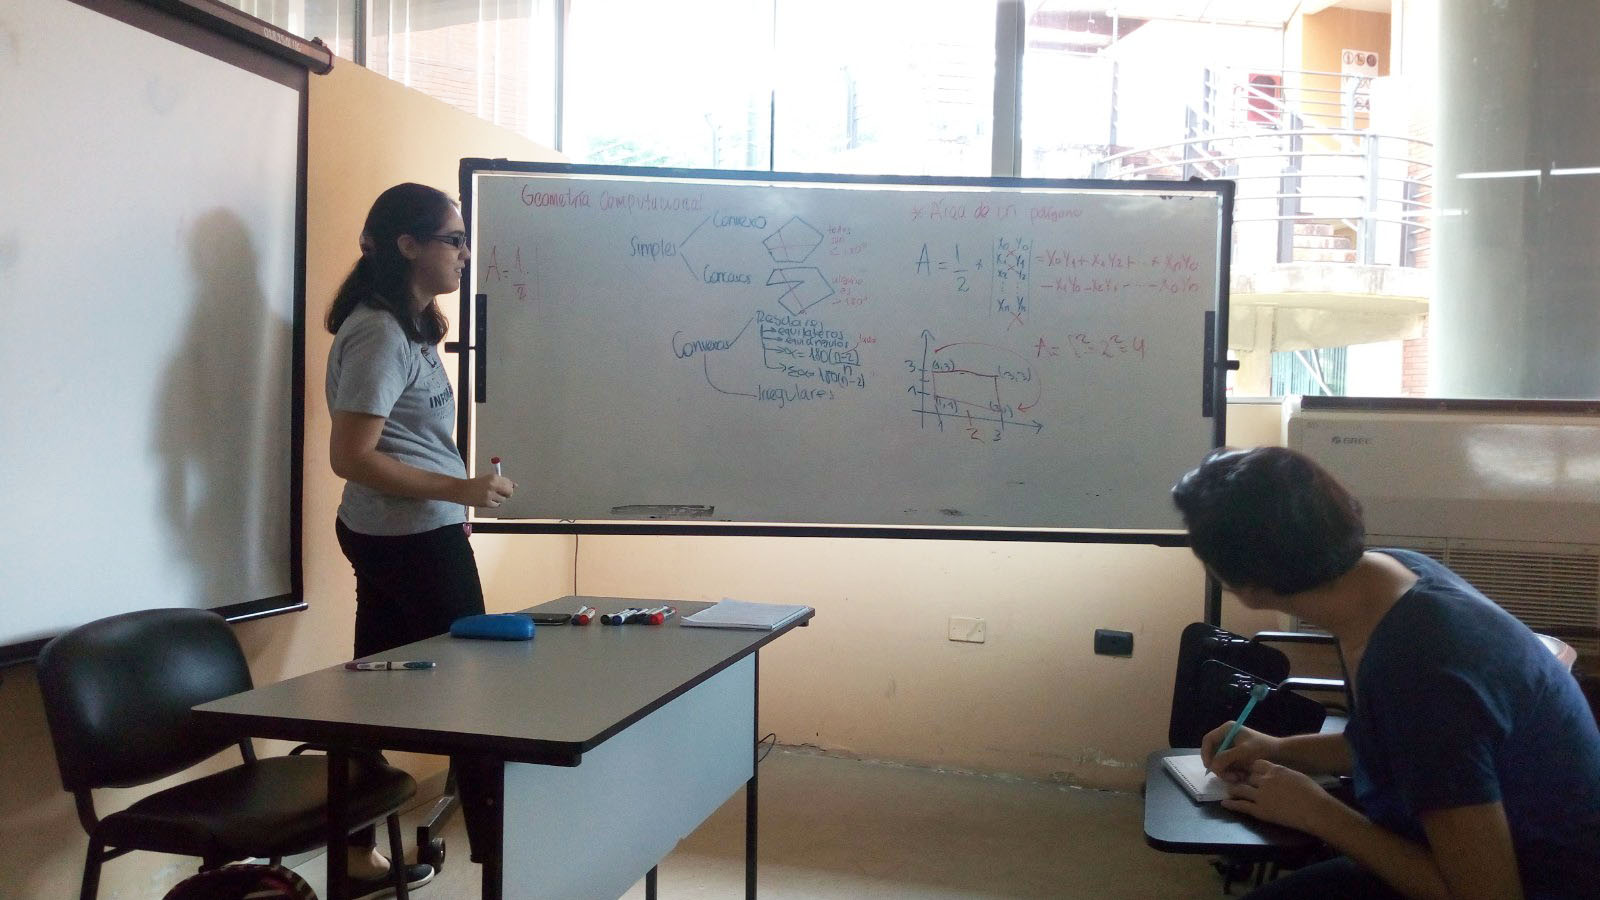 Geometría Computacional
Simples
Convexo
todos
son
Concavos
alguno
es
> 180°
Convexas
Regulares
equilateros
equiangulos
α = 180(n-2)
n
Σα = 180(n-2)
Irregulares
A = 1
2
* Área de un polígono
A = 1 *
2
X₀ Y₀
X₁ Y₁
X₂ Y₂
Xn Yn
= X₀Y₁ + X₁Y₂ + ... + XnY₀
- X₁Y₀ - X₂Y₁ - ... - X₀Yn
A = l² = 2² = 4
3
(1,3)
(3,3)
1
(1,1)
1
2
3
GREE